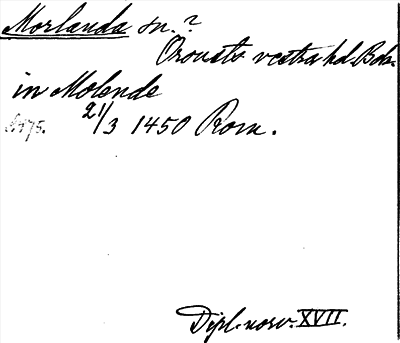 Morlanda sn. ?
Orousts vestra hd. Boh.
in Molende
21/3 1450 Rom.
Dipl. norv. XVII.